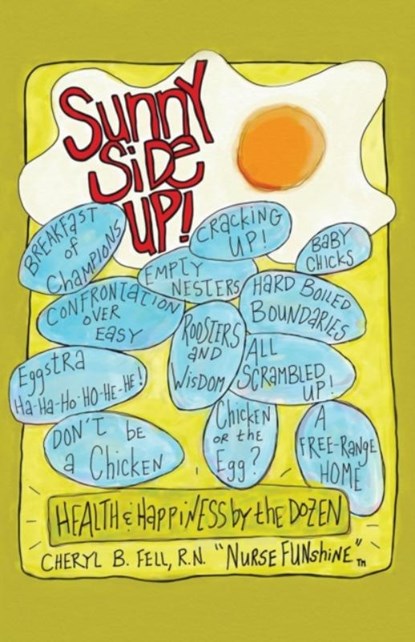 Sunny
Side
UP!
BREAKFAST
of
CHAMPIONS
CRACKING
UP!
BABY
CHICKS
EMPTY
NESTERS
CONFRONTATION
OVER
EASY
HARD BOILED
BOUNDARIES
ROOSTERS
AND
WISDOM
ALL
SCRAMBLED
UP!
Eggstra
Ha-Ha-Ho-HO-HE-HE!
DON'T be
a Chicken
Chicken
OR the
Egg?
A
FREE-RANGE
HOME
HEALTH & HAPPINESS by the DOZEN
CHERYL B. FELL, R.N. "NURSE FUNshINE"™